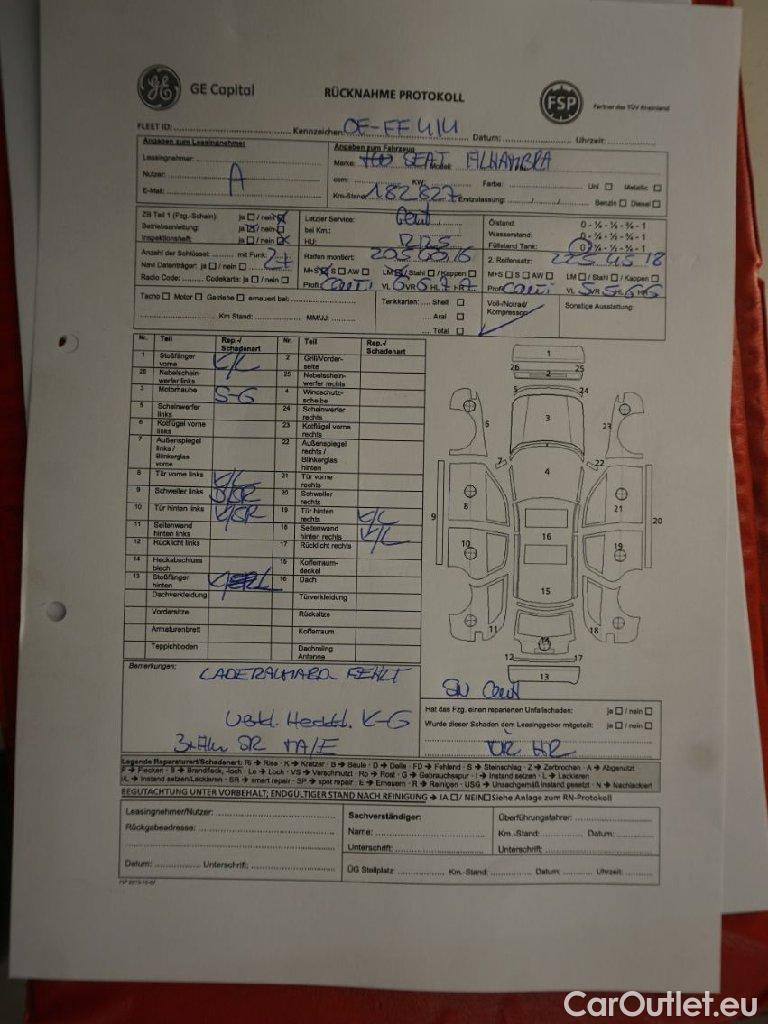 GE Capital
RÜCKNAHME PROTOKOLL
FSP
Partner des TÜV Rheinland
FLEET ID:
Kennzeichen:
Datum:
Uhrzeit:
Angaben zum Leasingnehmer
Angaben zum Fahrzeug
Leasingnehmer:
Marke: SEAT Modell: ALHAMBRA
Nutzer: A
ccm: KW: Farbe: Uni Metallic
E-Mail:
Km-Stand: 182.827 Erstzulassung: Benzin Diesel
ZB Teil 1 (Fzg.-Schein): ja / nein
Letzter Service:
Ölstand: 0 - ¼ - ½ - ¾ - 1
Betriebsanleitung: ja / nein
bei Km:
Wasserstand: 0 - ¼ - ½ - ¾ - 1
Inspektionsheft: ja / nein
HU:
Füllstand Tank: 0 - ¼ - ½ - ¾ - 1
Anzahl der Schlüssel: mit Funk:
Reifen montiert:
2. Reifensatz: 225 45 18
Navi Datenträger: ja / nein
M+S S AW LM / Stahl / Kappen
M+S S AW LM / Stahl / Kappen
Radio Code: Codekarte: ja / nein
Profil Conti VL 6 VR 6 HL 7 HR 7
Profil Conti VL 5 VR 5 HL 6 HR 6
Tacho Motor Getriebe erneuert bei:
Tankkarten: Shell
Voll-/Notrad/
Kompressor:
Sonstige Ausstattung:
Aral
Km Stand: MM/JJ:
Total
Nr. Teil Rep.-/ Schadenart Nr. Teil Rep.-/ Schadenart
1 Stoßfänger vorne K/L 2 Grill/Vorderseite
26 Nebelscheinwerfer links 25 Nebelscheinwerfer rechts
3 Motorhaube S-G 4 Windschutzscheibe
5 Scheinwerfer links 24 Scheinwerfer rechts
6 Kotflügel vorne links 23 Kotflügel vorne rechts
7 Außenspiegel links / Blinkerglas vorne 22 Außenspiegel rechts / Blinkerglas hinten
8 Tür vorne links 21 Tür vorne rechts
9 Schweller links 20 Schweller rechts
10 Tür hinten links K/SR 19 Tür hinten rechts K/L
11 Seitenwand hinten links 18 Seitenwand hinten rechts K/L
12 Rücklicht links 17 Rücklicht rechts
14 Heckabschlussblech 15 Kofferraumdeckel
13 Stoßfänger hinten 16 Dach
Dachverkleidung Türverkleidung
Vordersitze Rücksitze
Armaturenbrett Kofferraum
Teppichboden Dachreling Antenne
1
26 2 25
5 24
6 3 23
7 22
4
8 21
9 20
16
10 19
15
11 14 18
12 17
13
Bemerkungen: FEHLT
K-G
Hat das Fzg. einen reparierten Unfallschaden: ja / nein
Wurde dieser Schaden dem Leasinggeber mitgeteilt: ja / nein
Legende Reparaturart/Schadenart: Ri → Riss · K → Kratzer · B → Beule · D → Delle · FD → Fehlend · S → Steinschlag · Z → Zerbrochen · A → Abgenutzt
F → Flecken · B → Brandfleck, -loch · Lo → Loch · VS → Verschmutzt · Ro → Rost · G → Gebrauchsspur · I → Instand setzen · L → Lackieren
IL → Instand setzen/Lackieren · SR → smart repair · SP → spot repair · E → Erneuern · R → Reinigen · USG → Unsachgemäß instand gesetzt · N → Nachlackiert
BEGUTACHTUNG UNTER VORBEHALT; ENDGÜLTIGER STAND NACH REINIGUNG → JA / NEIN Siehe Anlage zum RN-Protokoll
Leasingnehmer/Nutzer:
Sachverständiger:
Überführungsfahrer:
Rückgabeadresse:
Name:
Km.-Stand: Datum:
Unterschrift:
Unterschrift:
Datum: Unterschrift:
ÜG Stellplatz Km.-Stand: Datum: Uhrzeit:
CarOutlet.eu